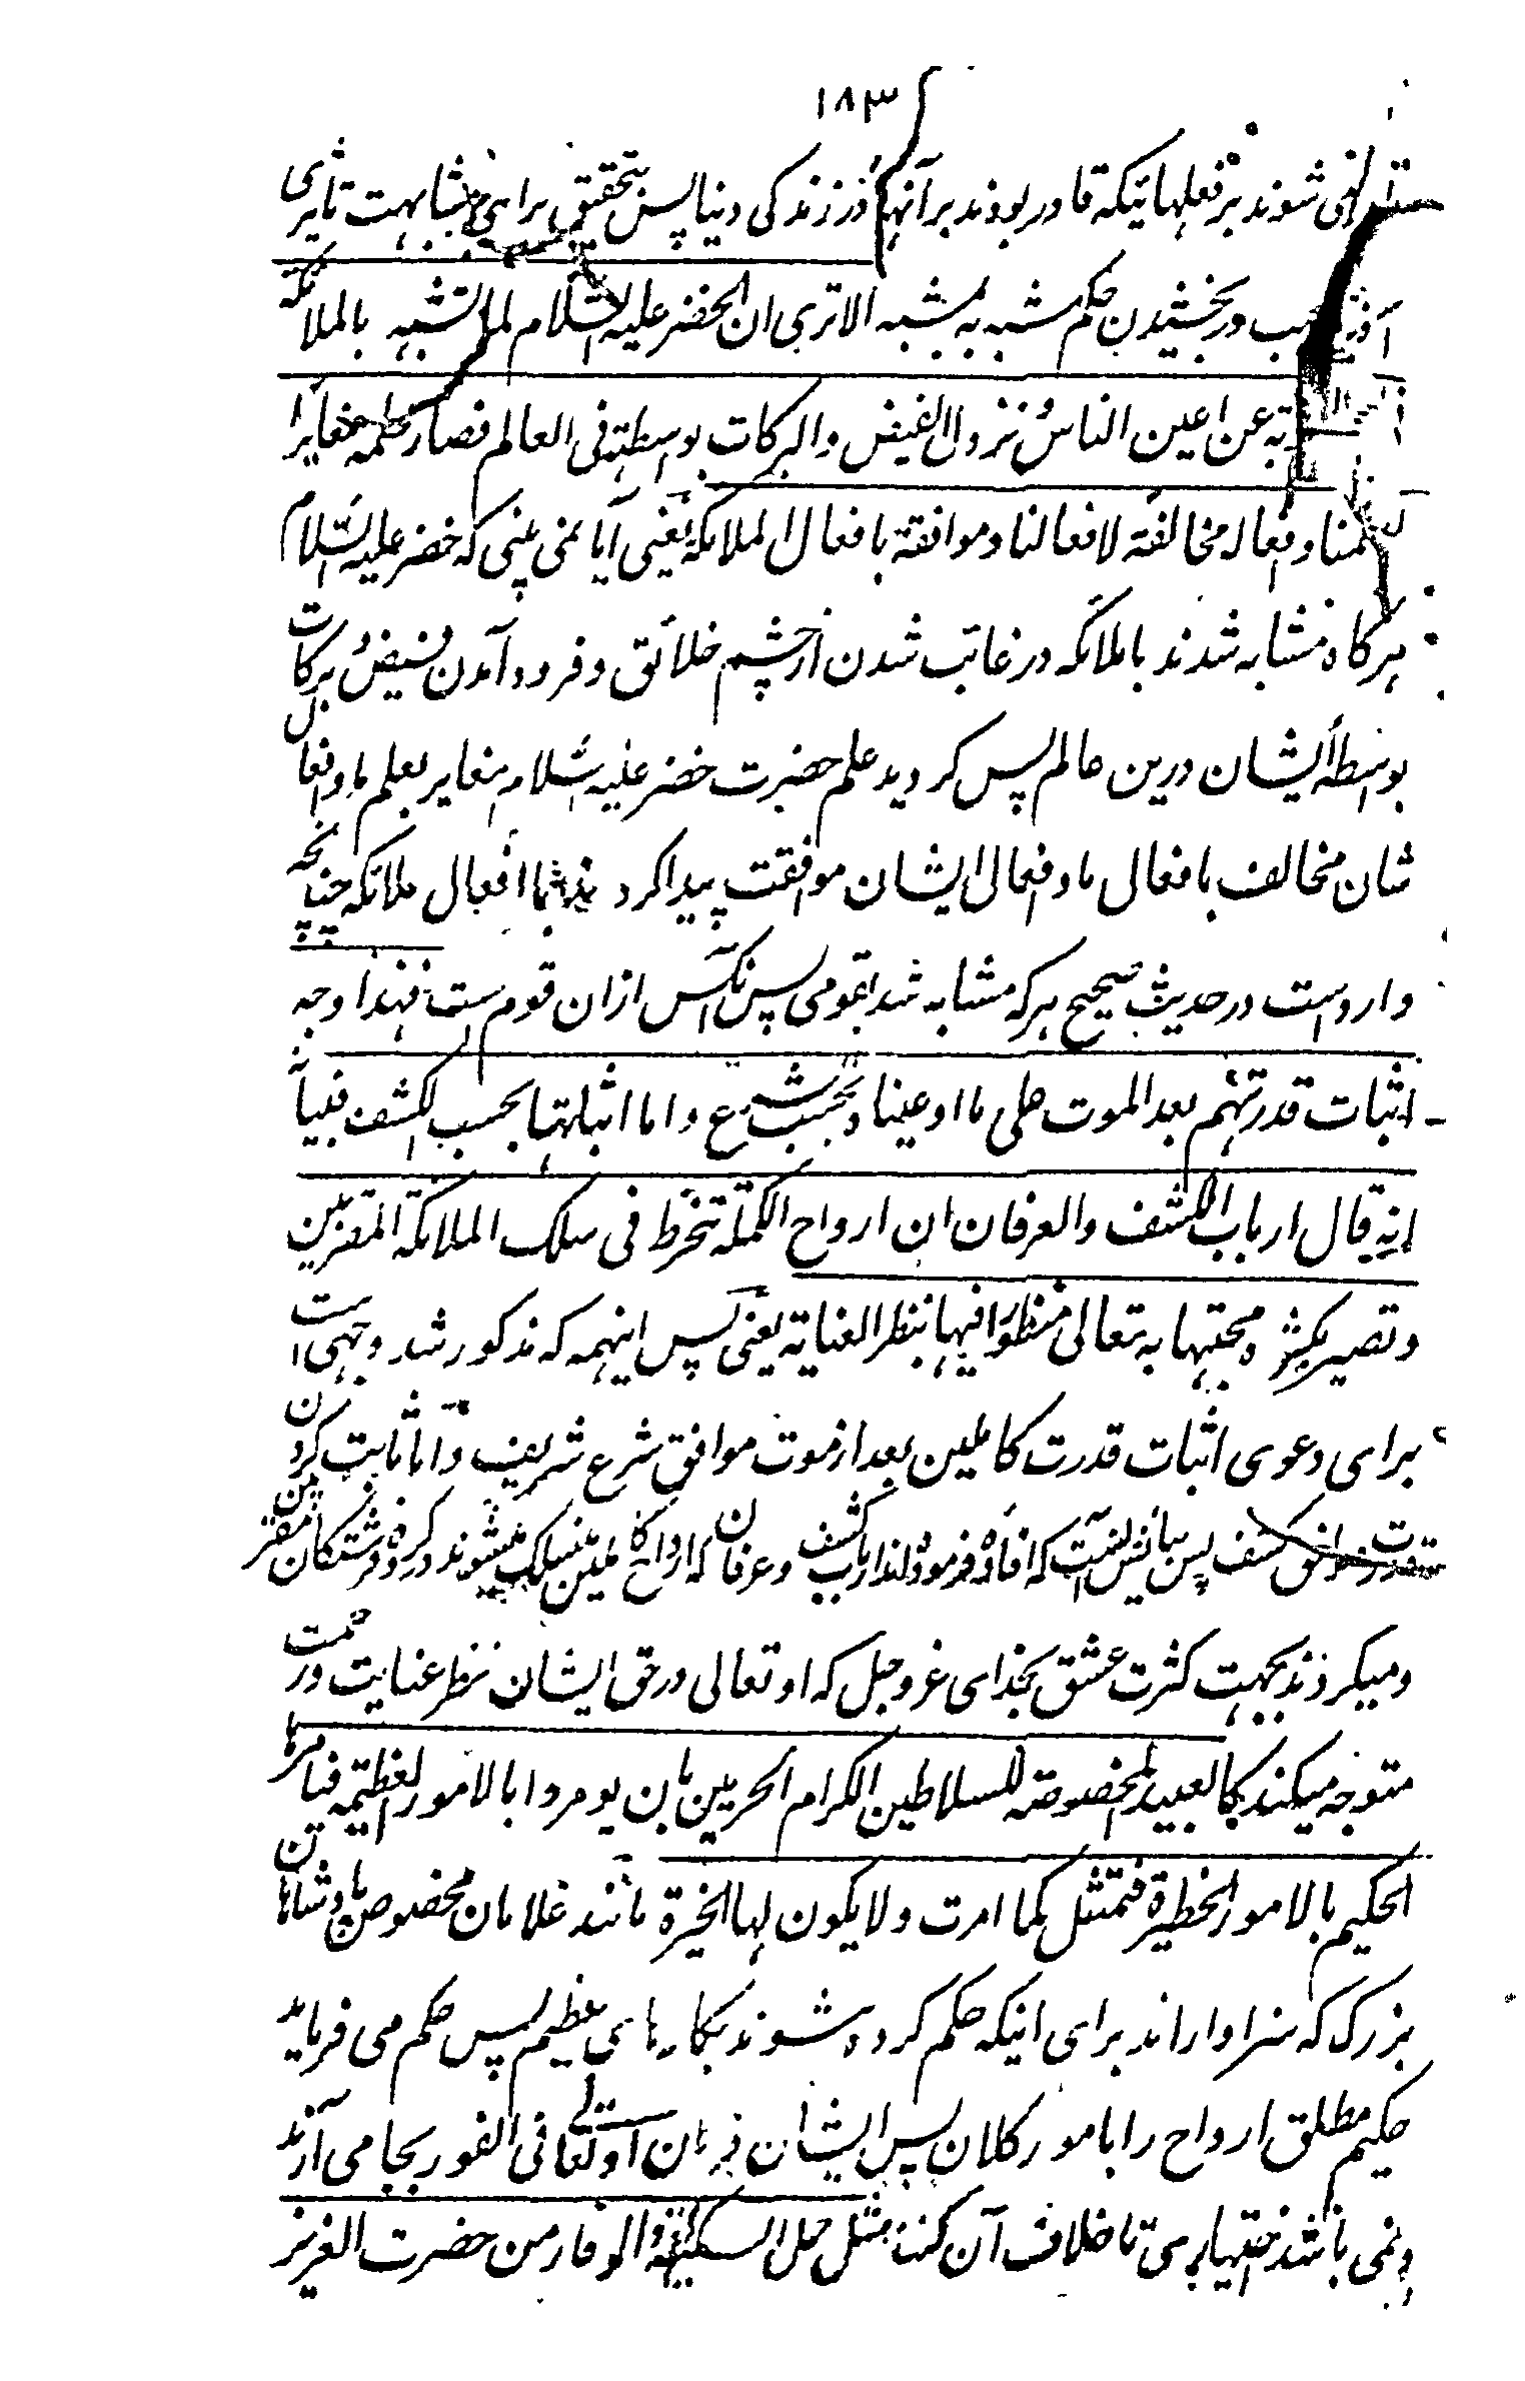 ۱۸۳
می شوند بر فعلهائیکه قادر بودند بر آنها در زندگی دنیا پس بتحقیق برای مشابهت تاثیری
در بخشیدن حکم مشبه به بمشبه الا تری ان الخضر علیه السلام لما تشبه بالملائکة
عن اعین الناس و نزول الفیض و البرکات بوسطته فی العالم فصار علمه مغایرا
لعلمنا و افعاله مخالفة لافعالنا و موافقة بافعال الملائکة یعنی آیا نمی بینی که خضر علیه السلام
هرگاه مشابه شدند با ملائکه در غائب شدن از چشم خلائق و فرود آمدن فیض و برکات
بوسطهٔ ایشان درین عالم پس گردید علم حضرت خضر علیه السلام مغایر بعلم ما و افعال
شان مخالف بافعال ما و افعال ایشان موافقت پیدا کردند با افعال ملائکه چنانچه
وارد است در حدیث صحیح هر که مشابه شد بقومی پس آنکس ازان قوم ست فهذا وجه
اثبات قدرتهم بعد الموت علی ما ادعینا بحسب الشرع و اما اثباتها بحسب الکشف فبیانه
انه قال ارباب الکشف والعرفان ان ارواح الکملة تنخرط فی سلک الملائکة المقربین
و تصیر بکثرة محبتها به تعالی منظورا فیها بنظر العنایة یعنی پس اینهمه که مذکور شد وجهی است
برای دعوی اثبات قدرت کاملین بعد از موت موافق شرع شریف و اما ثابت کردن
قدرت موافق کشف پس بیانش اینست که افاده فرموده اند ارباب کشف و عرفان که ارواح کاملین منسلک میشوند در گروه فرشتگان مقربین
و میگردند بجهت کثرت عشق بخدای عز و جل که او تعالی در حق ایشان نظر عنایت و رحمت
متوجه میکند کالعبید المخصوصة للسلاطین الکرام الحریین بان یومروا بالامور العظیمة فیامرها
الحکیم بالامور الخطیرة فتمتثل کما امرت و لا یکون لها الخیرة مانند غلامان مخصوص پادشاهان
بزرگ که سزاوار اند برای اینکه حکم کرده شوند بکارهای عظیم پس حکم می فرماید
حکیم مطلق ارواح را بامور کلان پس ایشان فرمان او تعالی فی الفور بجا می آرند
و نمی باشد اختیاری تا خلاف آن کنند مثل حمل السکینة و الوقار من حضرت العزیز